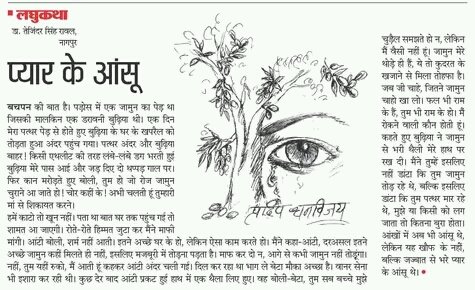 लघुकथा
डा. तेजिंदर सिंह रावल,
नागपुर
प्यार के आंसू
बचपन की बात है। पड़ोस में एक जामुन का पेड़ था
जिसकी मालकिन एक डरावनी बुढ़िया थी। एक दिन
मेरा पत्थर पेड़ से होते हुए बुढ़िया के घर के खपरैल को
तोड़ता हुआ अंदर पहुंच गया। पत्थर अंदर और बुढ़िया
बाहर! किसी एथलीट की तरह लंबे-लंबे डग भरती हुई
बुढ़िया मेरे पास आई और जड़ दिए दो थप्पड़ गाल पर।
फिर कान मरोड़ते हुए बोली, तुम हो जो रोज जामुन
चुराने आ जाते हो! चोर कहीं के! अभी चलती हूं तुम्हारी
मां से शिकायत करने।
हमें काटो तो खून नहीं। पता था बात घर तक पहुंच गई तो
शामत आ जाएगी। रोते-रोते हिम्मत जुटा कर मैंने माफी
मांगी। आंटी बोली, शर्म नहीं आती। इतने अच्छे घर के हो, लेकिन ऐसा काम करते हो। मैंने कहा-आंटी, दरअसल इतने
अच्छे जामुन कहीं मिलते ही नहीं, इसलिए मजबूरी में तोड़ना पड़ता है। माफ कर दो न, आगे से कभी जामुन नहीं तोडूंगा।
नहीं, तुम यहीं रुको, मैं आती हूं कहकर आंटी अंदर चली गई। दिल कर रहा था भाग ले बेटा मौका अच्छा है। वानर सेना
भी इशारा कर रही थी। कुछ देर बाद आंटी प्रकट हुई हाथ में एक थैला लिए हुए। वह बोली-बेटा, तुम सब बच्चे मुझे
चुड़ैल समझते हो न, लेकिन
मैं वैसी नहीं हूं। जामुन मेरे
थोड़े ही हैं, ये तो कुदरत के
खजाने से मिला तोहफा है।
जब जी चाहे, जितने जामुन
चाहो खा लो। फल भी राम
के हैं, तुम भी राम के हो। मैं
रोकने वाली कौन होती हूं।
कहते हुए बुढ़िया ने जामुन
से भरी थैली मेरे हाथ पर
रख दी। मैंने तुम्हें इसलिए
नहीं डांटा कि तुम जामुन
तोड़ रहे थे, बल्कि इसलिए
डांटा कि तुम पत्थर मार रहे
थे, मुझे या किसी को लग
जाता तो कितना बुरा होता।
आंखों में अब भी आंसू थे,
लेकिन यह खौफ के नहीं,
बल्कि जज्बात से भरे प्यार
के आंसू थे।